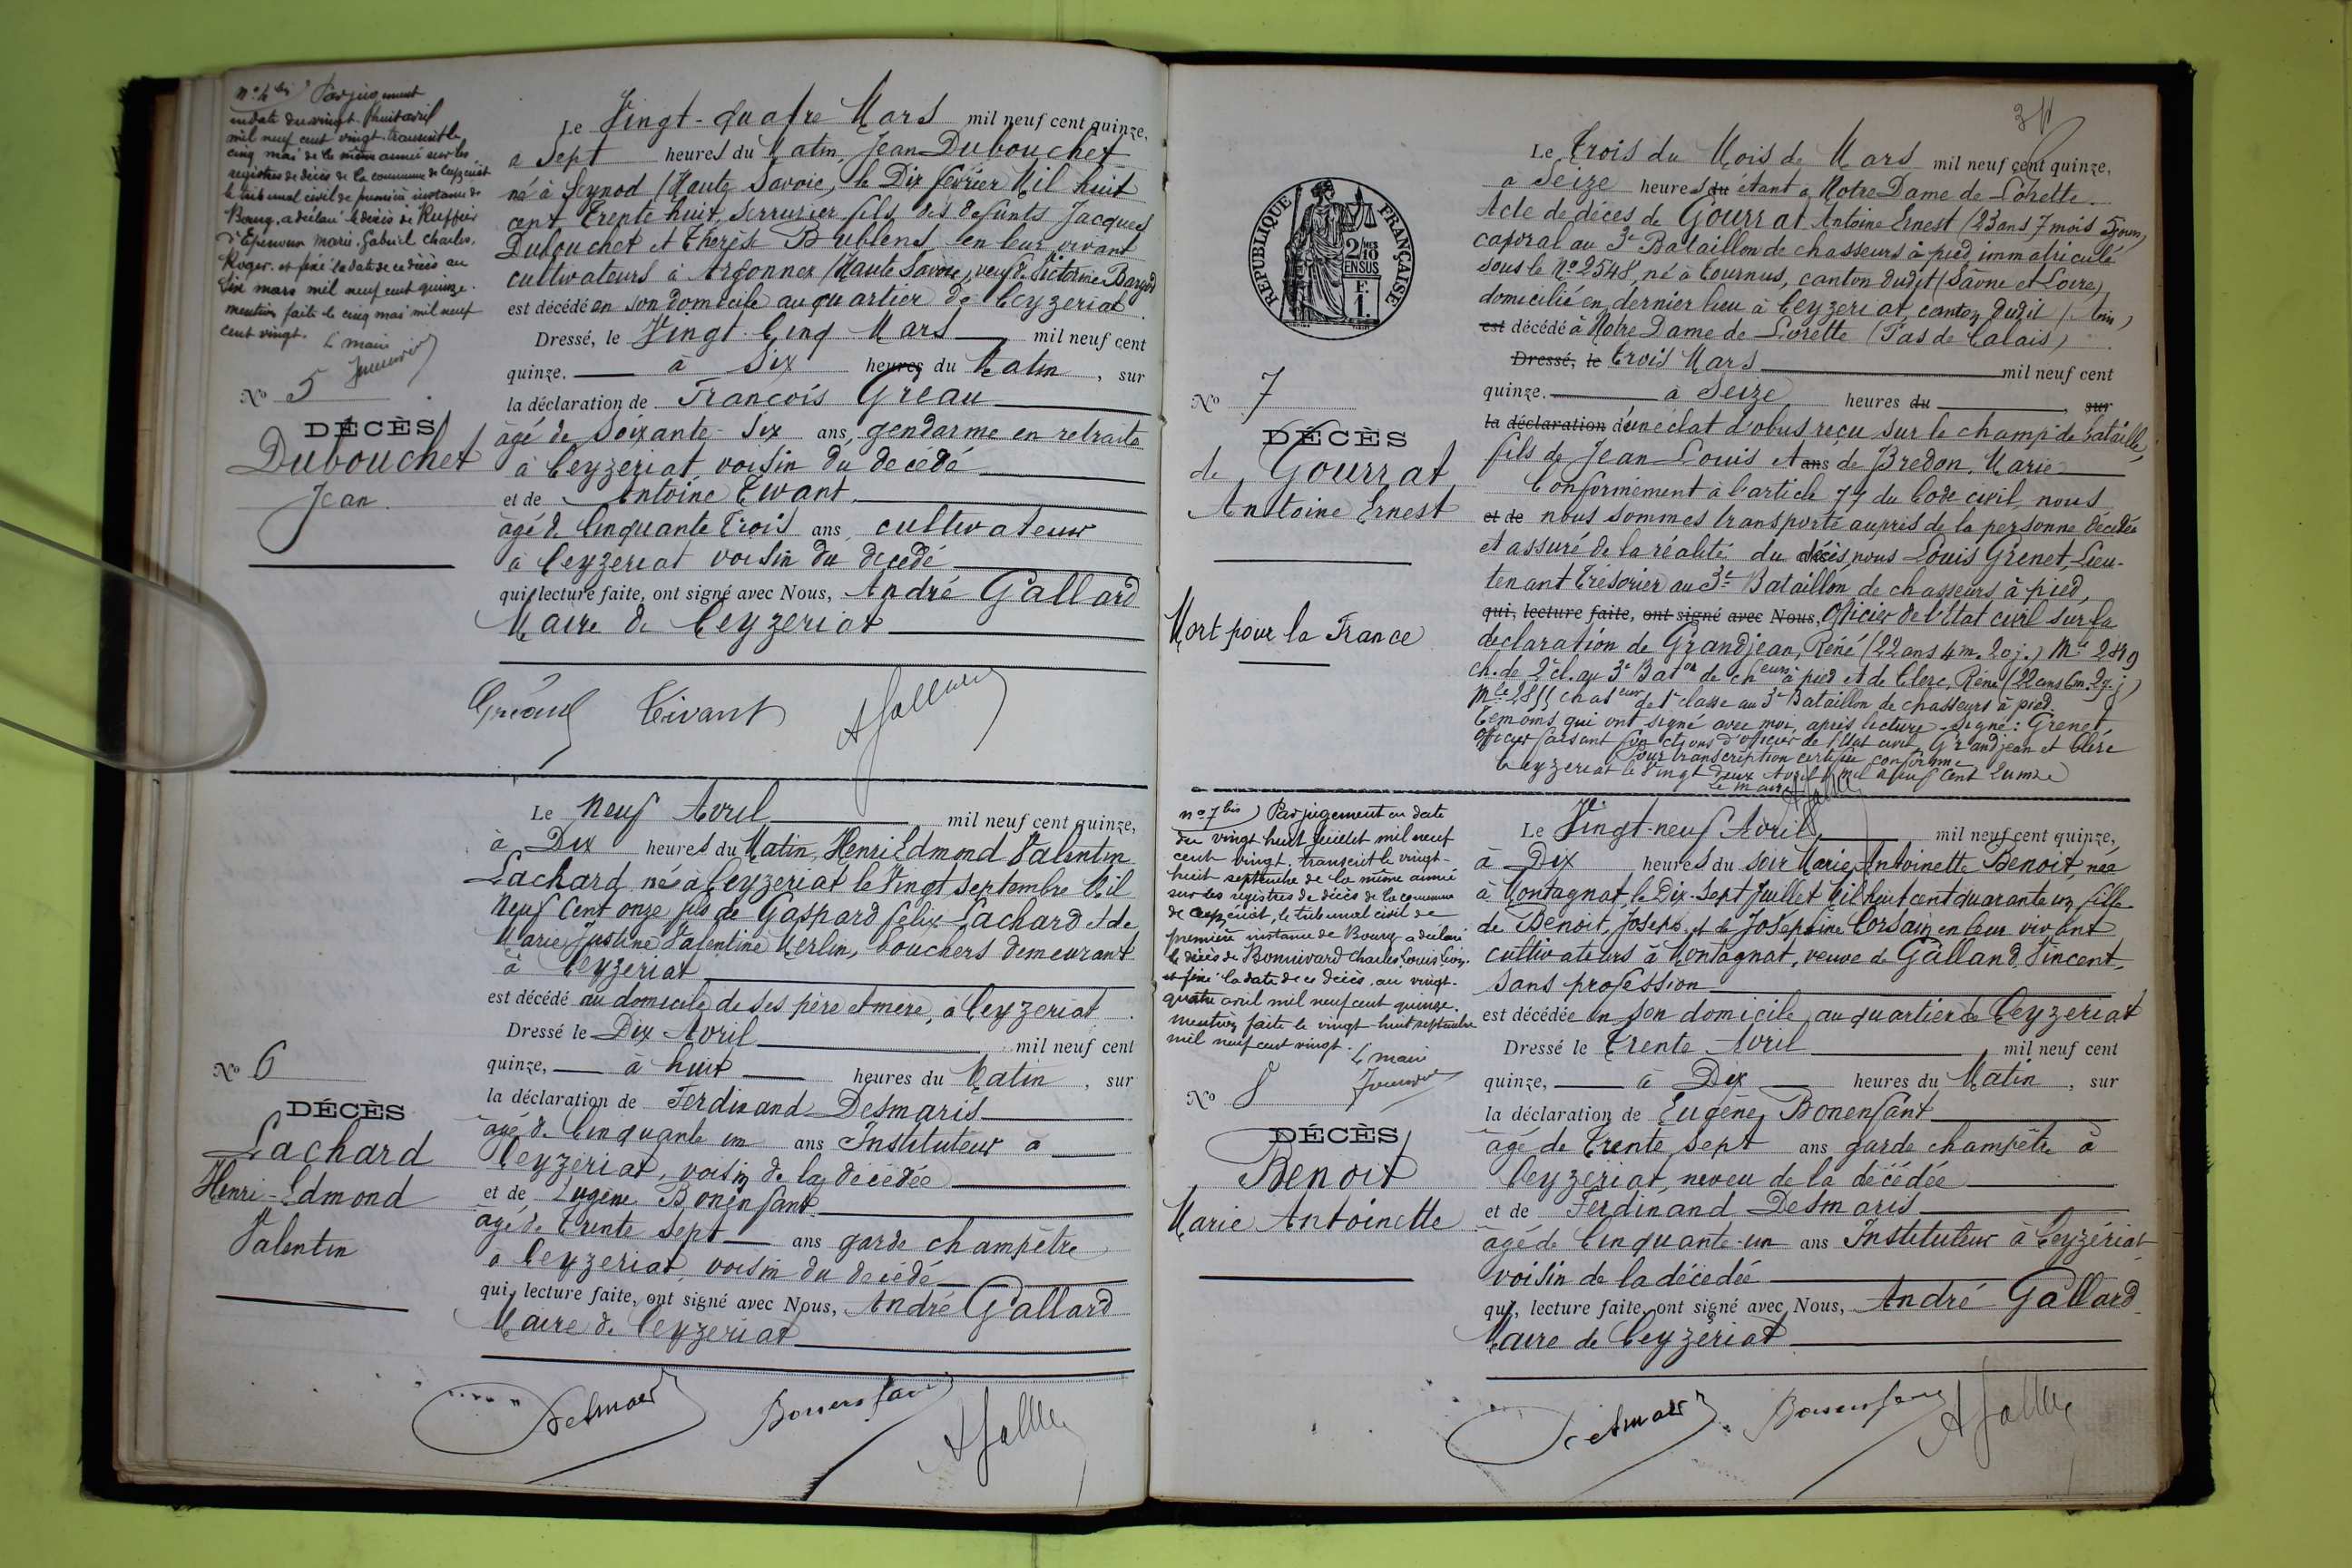 n° 4 bis) Par jugement
en date du vingt-huit avril
mil neuf cent vingt, transcrit le
cinq mai de la même année sur les
registres de décès de la commune de Ceyzériat
le tribunal civil de première instance de
Bourg, a déclaré le décès de Ruffieu
d'Epernoux Marie, Gabriel Charles,
Roger. et fixé la date de ce décès au
dix mars mil neuf cent quinze.
mention faite le cinq mai mil neuf
cent vingt.
Le maire
No 5
DÉCÈS
Dubouchet
Jean
Le Vingt-quatre Mars mil neuf cent quinze,
à Sept heures du Matin, Jean Dubouchet
né à Seynod (Haute Savoie, le Dix février Mil huit
cent Trente huit, Serrurier fils des defunts Jacques
Dubouchet et Therèse Bublens en leur vivant
cultivateurs à Argonnex (Haute Savoie, veuf de Victorine
est décédé en son domicile au quartier de Ceyzeriat.
Dressé, le Vingt-Cinq Mars mil neuf cent
quinze. à Six heures du Matin, sur
la déclaration de François Gréau
âgé de Soixante-Six ans, gendarme en retraite
à Ceyzeriat voisin du décédé
et de Antoine Tivant.
âgé de Cinquante Trois ans, cultivateur
à Ceyzeriat voisin du decedé
qui lecture faite, ont signé avec Nous, André Gallard
Maire de Ceyzeriat
Gréau Tivant AGallard
No 6
DÉCÈS
Lachard
Henri-Edmond
Valentin
Le Neuf Avril mil neuf cent quinze,
à Dix heures du Matin, Henri Edmond Valentin
Lachard, né à Ceyzeriat le Vingt Septembre Mil
Neuf Cent onze fils de Gaspard félix Lachard et de
Marie Justine Valentine Merlin, bouchers demeurant
à Ceyzeriat
est décédé au domicile de ses père et mère, à Ceyzeriat.
Dressé le Dix Avril mil neuf cent
quinze, à huit heures du Matin, sur
la déclaration de Ferdinand Desmaris
âgé de Cinquante un ans Instituteur à
Ceyzeriat, voisin de la décédée
et de Eugène Bonenfant
âgé de Trente Sept ans garde champêtre
à Ceyzeriat, voisin du decédé
qui, lecture faite, ont signé avec Nous, André Gallard
Maire de Ceyzeriat
Desmaris Bonenfant AGallard
REPUBLIQUE FRANÇAISE
2/10MES
EN SUS
F.
1.
No 7
DÉCÈS
de Gourrat
Antoine Ernest
Mort pour la France
Le Trois du Mois de Mars mil neuf cent quinze,
à Seize heures du étant à Notre Dame de Lorette.
Acte de décès de Gourrat Antoine Ernest (23 ans, 7 mois 5 jours)
caporal au 3e Bataillon de chasseurs à pied immatriculé
sous le No 2548, né à Tournus, canton dudit (Sâone et Loire)
domicilié en dernier lieu à Ceyzeriat, canton dudit (Ain)
est décédé à Notre Dame de Lorette (Pas de Calais)
Dressé, le Trois Mars mil neuf cent
quinze. à Seize heures du sur
la déclaration d'un éclat d'obus reçu sur le champ de bataille,
fils de Jean Louis et ans de Bredon, Marie
Conformément à l'article 77 du Code civil, nous
et de nous sommes transporté auprès de la personne décédée
et assuré de la réalité du décès, nous Louis Grenet, Lieu-
tenant Trésorier au 3e Bataillon de chasseurs à pied,
qui, lecture faite, ont signé avec Nous, Officier de l'Etat civil sur la
declaration de Grandjean, René (22 ans 4 m. 20 j.) Mle 2849
ch. de 2e cl. au 3e Baton de cheurs à pied et de Clere, René (22 ans 6 m. 29 j.)
Mle 2855 chasseur de 1e classe au 3e Bataillon de chasseurs à pied.
Temoins qui ont signé avec moi après lecture - Signé: Grenet
Officier faisant fonctions d'officier de l'Etat civil, Grandjean et Clere
Pour transcription certifiée conforme
Ceyzeriat le Vingt deux Avril mil neuf cent quinze
Le Maire AGallard
n° 7 bis) Par jugement en date
du vingt huit juillet mil neuf
cent vingt, transcrit le vingt-
huit septembre de la même année
sur les registres de décès de la commune
de Ceyzériat, le tribunal civil de
première instance de Bourg a déclaré
le décès de Bonnivard Charles Louis Léon.
et fixé la date de ce décès, au vingt-
quatre avril mil neuf cent quinze.
Mention faite le vingt-huit septembre
mil neuf cent vingt.
Le maire
No 8
DÉCÈS
Benoit
Marie Antoinette
Le Vingt-neuf Avril mil neuf cent quinze,
à Dix heures du soir Marie Antoinette Benoit, née
à Montagnat, le Dix-Sept Juillet Mil huit cent quarante un fille
de Benoit, Joseph, et de Josephine Corsain en leur vivant
cultivateurs à Montagnat, veuve de Galland Vincent,
sans profession
est décédée en son domicile au quartier de Ceyzeriat
Dressé le Trente Avril mil neuf cent
quinze, à Dix heures du Matin, sur
la déclaration de Eugène Bonenfant
âgé de Trente Sept ans garde champêtre à
Ceyzeriat, neveu de la décédée
et de Ferdinand Desmaris
âgé de Cinquante-un ans Instituteur à Ceyzériat
voisin de la décédée
qui, lecture faite, ont signé avec Nous, André Gallard
Maire de Ceyzeriat
Desmaris Bonenfant AGallard